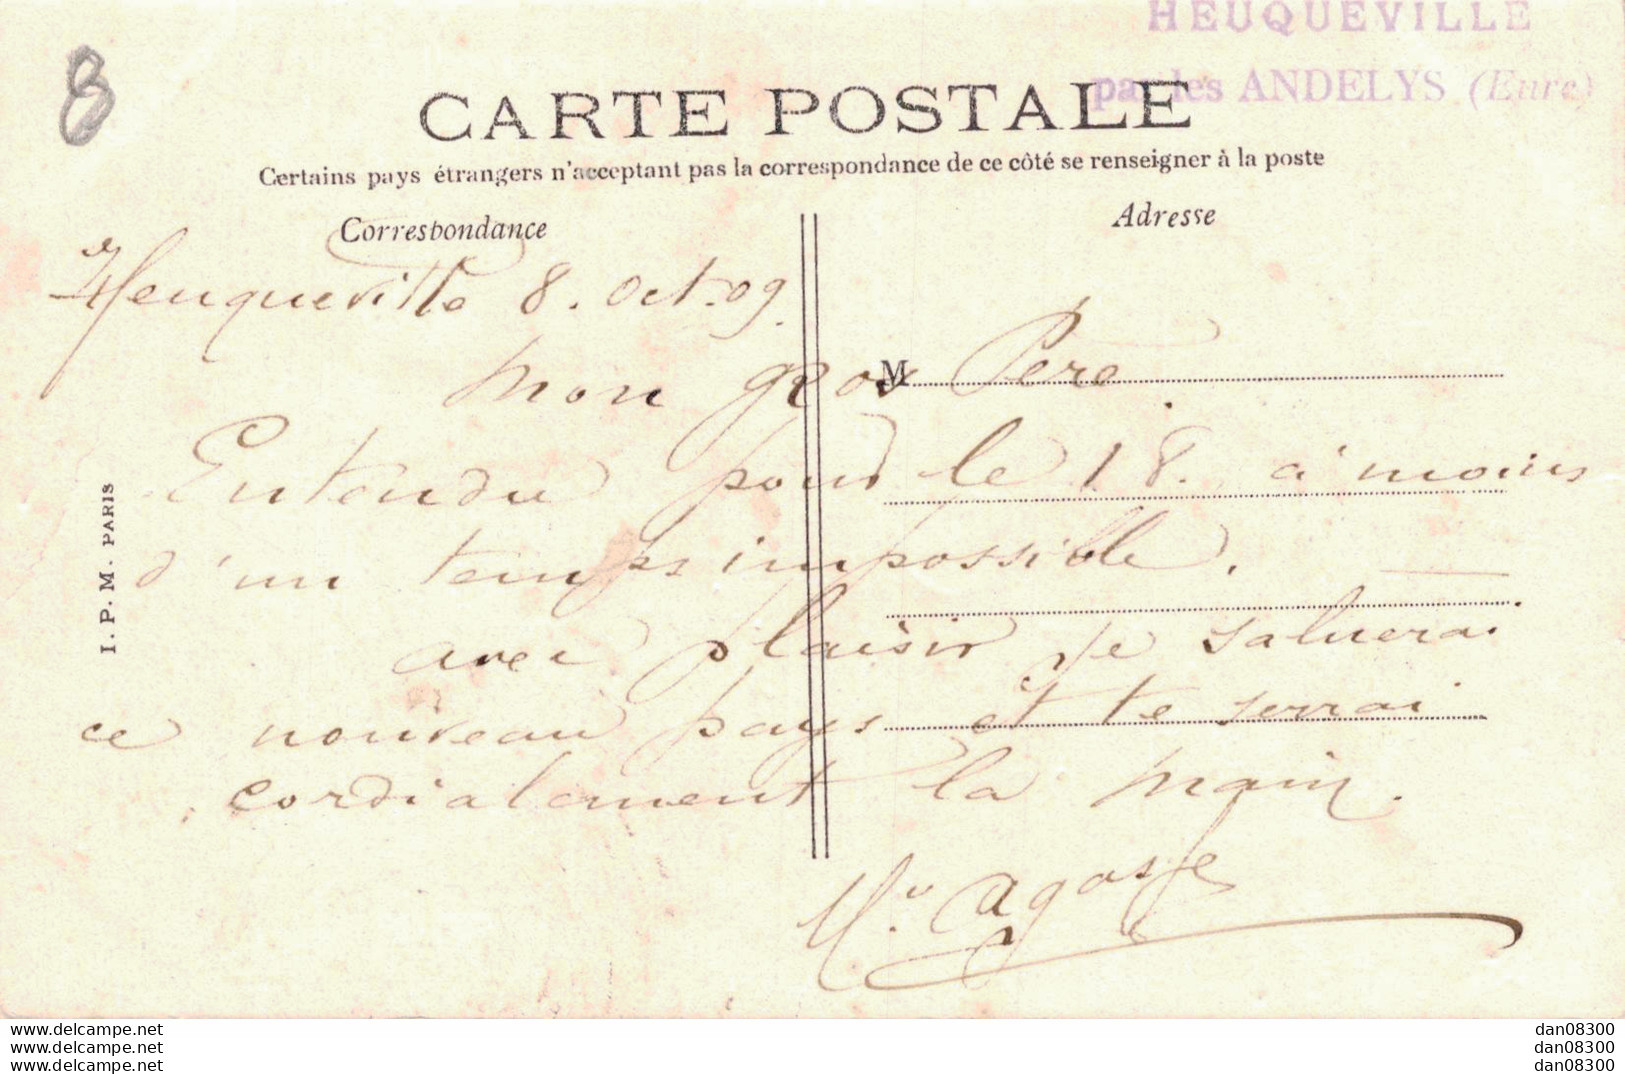 HEUQUEVILLE
par les ANDELYS (Eure)
8
CARTE POSTALE
Certains pays étrangers n'acceptant pas la correspondance de ce côté se renseigner à la poste
Correspondance
Adresse
Heuqueville 8. Oct. 09.
M
mon gros Père
Entendu pour le 18. à moins
d'un temps impossible.
avec plaisir je saluerai
ce nouveau pays et te serrai
cordialement la main.
I. P. M. PARIS
www.delcampe.net
www.delcampe.net
www.delcampe.net
dan08300
dan08300
dan08300